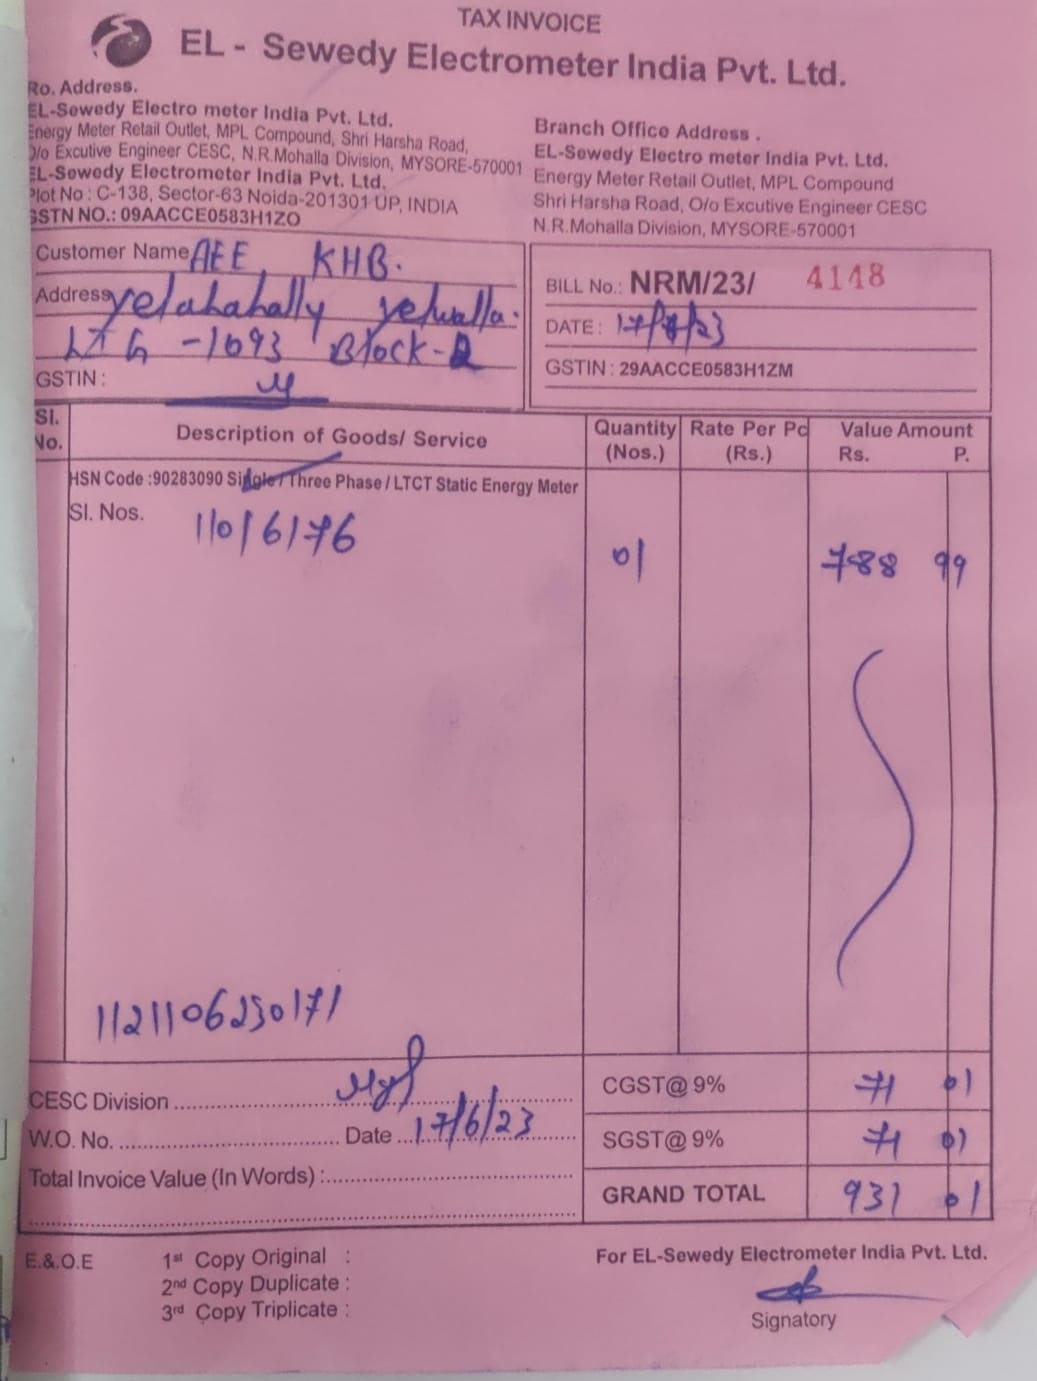 TAX INVOICE
EL - Sewedy Electrometer India Pvt. Ltd.
Ro. Address.
EL-Sewedy Electro meter India Pvt. Ltd.
Energy Meter Retail Outlet, MPL Compound, Shri Harsha Road,
O/o Excutive Engineer CESC, N.R.Mohalla Division, MYSORE-570001
EL-Sewedy Electrometer India Pvt. Ltd.
Plot No : C-138, Sector-63 Noida-201301 UP, INDIA
GSTN NO.: 09AACCE0583H1ZO
Branch Office Address .
EL-Sewedy Electro meter India Pvt. Ltd.
Energy Meter Retail Outlet, MPL Compound
Shri Harsha Road, O/o Excutive Engineer CESC
N.R.Mohalla Division, MYSORE-570001
Customer Name AEE KHB.
Address yelahahally yelwalla.
LIG -1693 Block-2
GSTIN :
BILL No.: NRM/23/ 4148
DATE : 17/ /23
GSTIN : 29AACCE0583H1ZM
Sl. No. Description of Goods/ Service Quantity (Nos.) Rate Per Pc (Rs.) Value Amount Rs. P.
HSN Code :90283090 Single / Three Phase / LTCT Static Energy Meter
Sl. Nos. 11016176 01 788 99
1121106230171
CESC Division CGST@ 9% 71 01
W.O. No. Date 17/6/23 SGST@ 9% 71 01
Total Invoice Value (In Words) : GRAND TOTAL 931 01
E.&.O.E 1st Copy Original :
2nd Copy Duplicate :
3rd Copy Triplicate :
For EL-Sewedy Electrometer India Pvt. Ltd.
Signatory